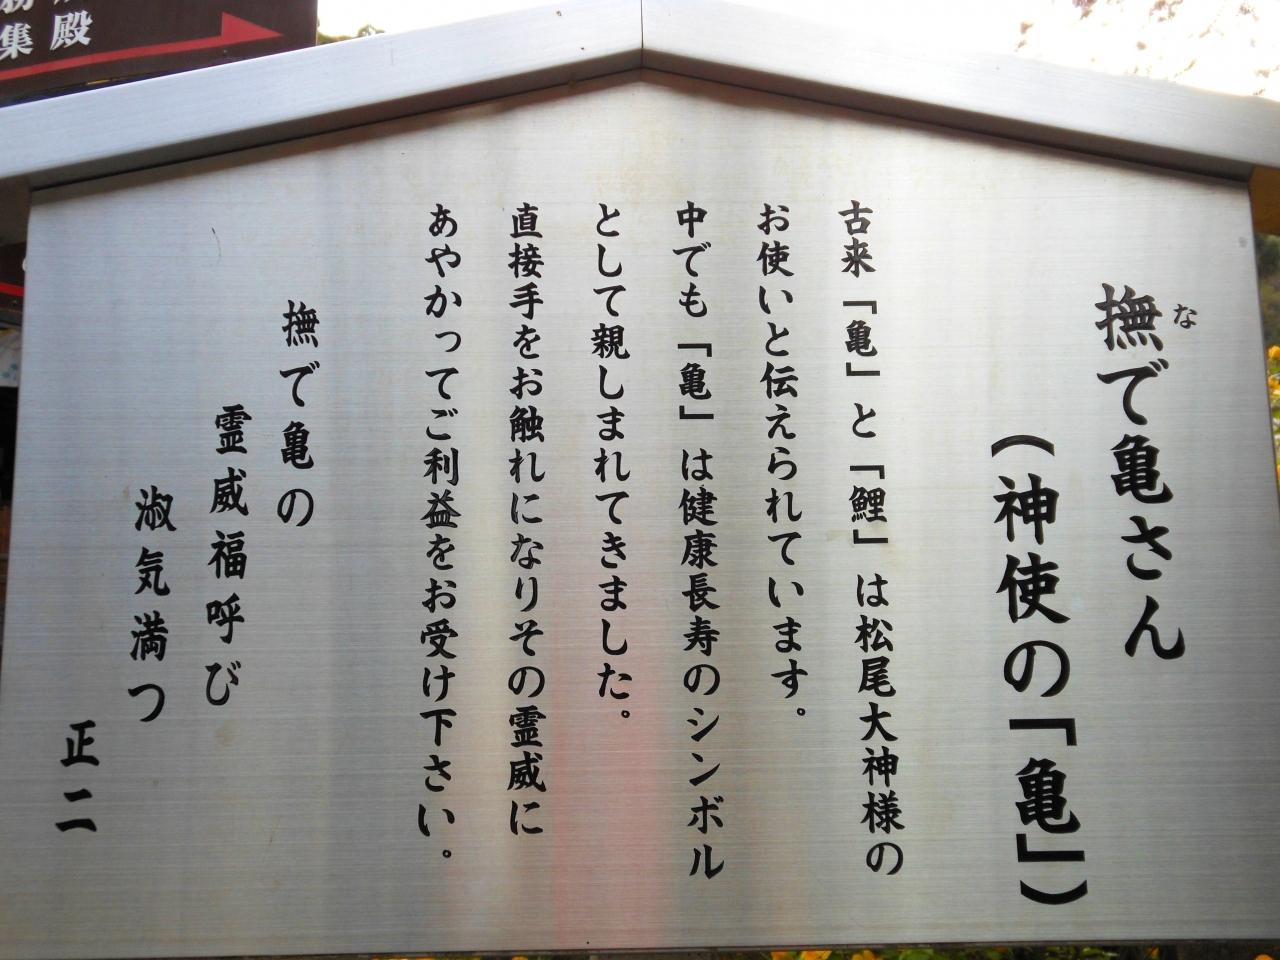 撫で亀さん
な
(神使の「亀」)
古来「亀」と「鯉」は松尾大神様の
お使いと伝えられています。
中でも「亀」は健康長寿のシンボル
として親しまれてきました。
直接手をお触れになりその霊威に
あやかってご利益をお受け下さい。
撫で亀の
霊威福呼び
淑気満つ
正二
殿
集